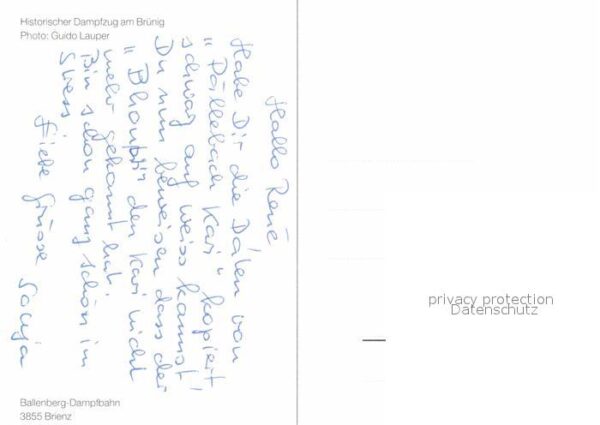 Historischer Dampfzug am Brünig
Photo: Guido Lauper
Hallo René
Habe Dir die Daten von
"Dällebach Kari" kopiert!
schwarz auf weiss kannst
Du nun beweisen dass der
den Kari nicht
mehr gekannt hat.
Bin schon ganz schön im
Stress
Liebe Grüsse Sonja
Ballenberg-Dampfbahn
3855 Brienz
privacy protection
Datenschutz